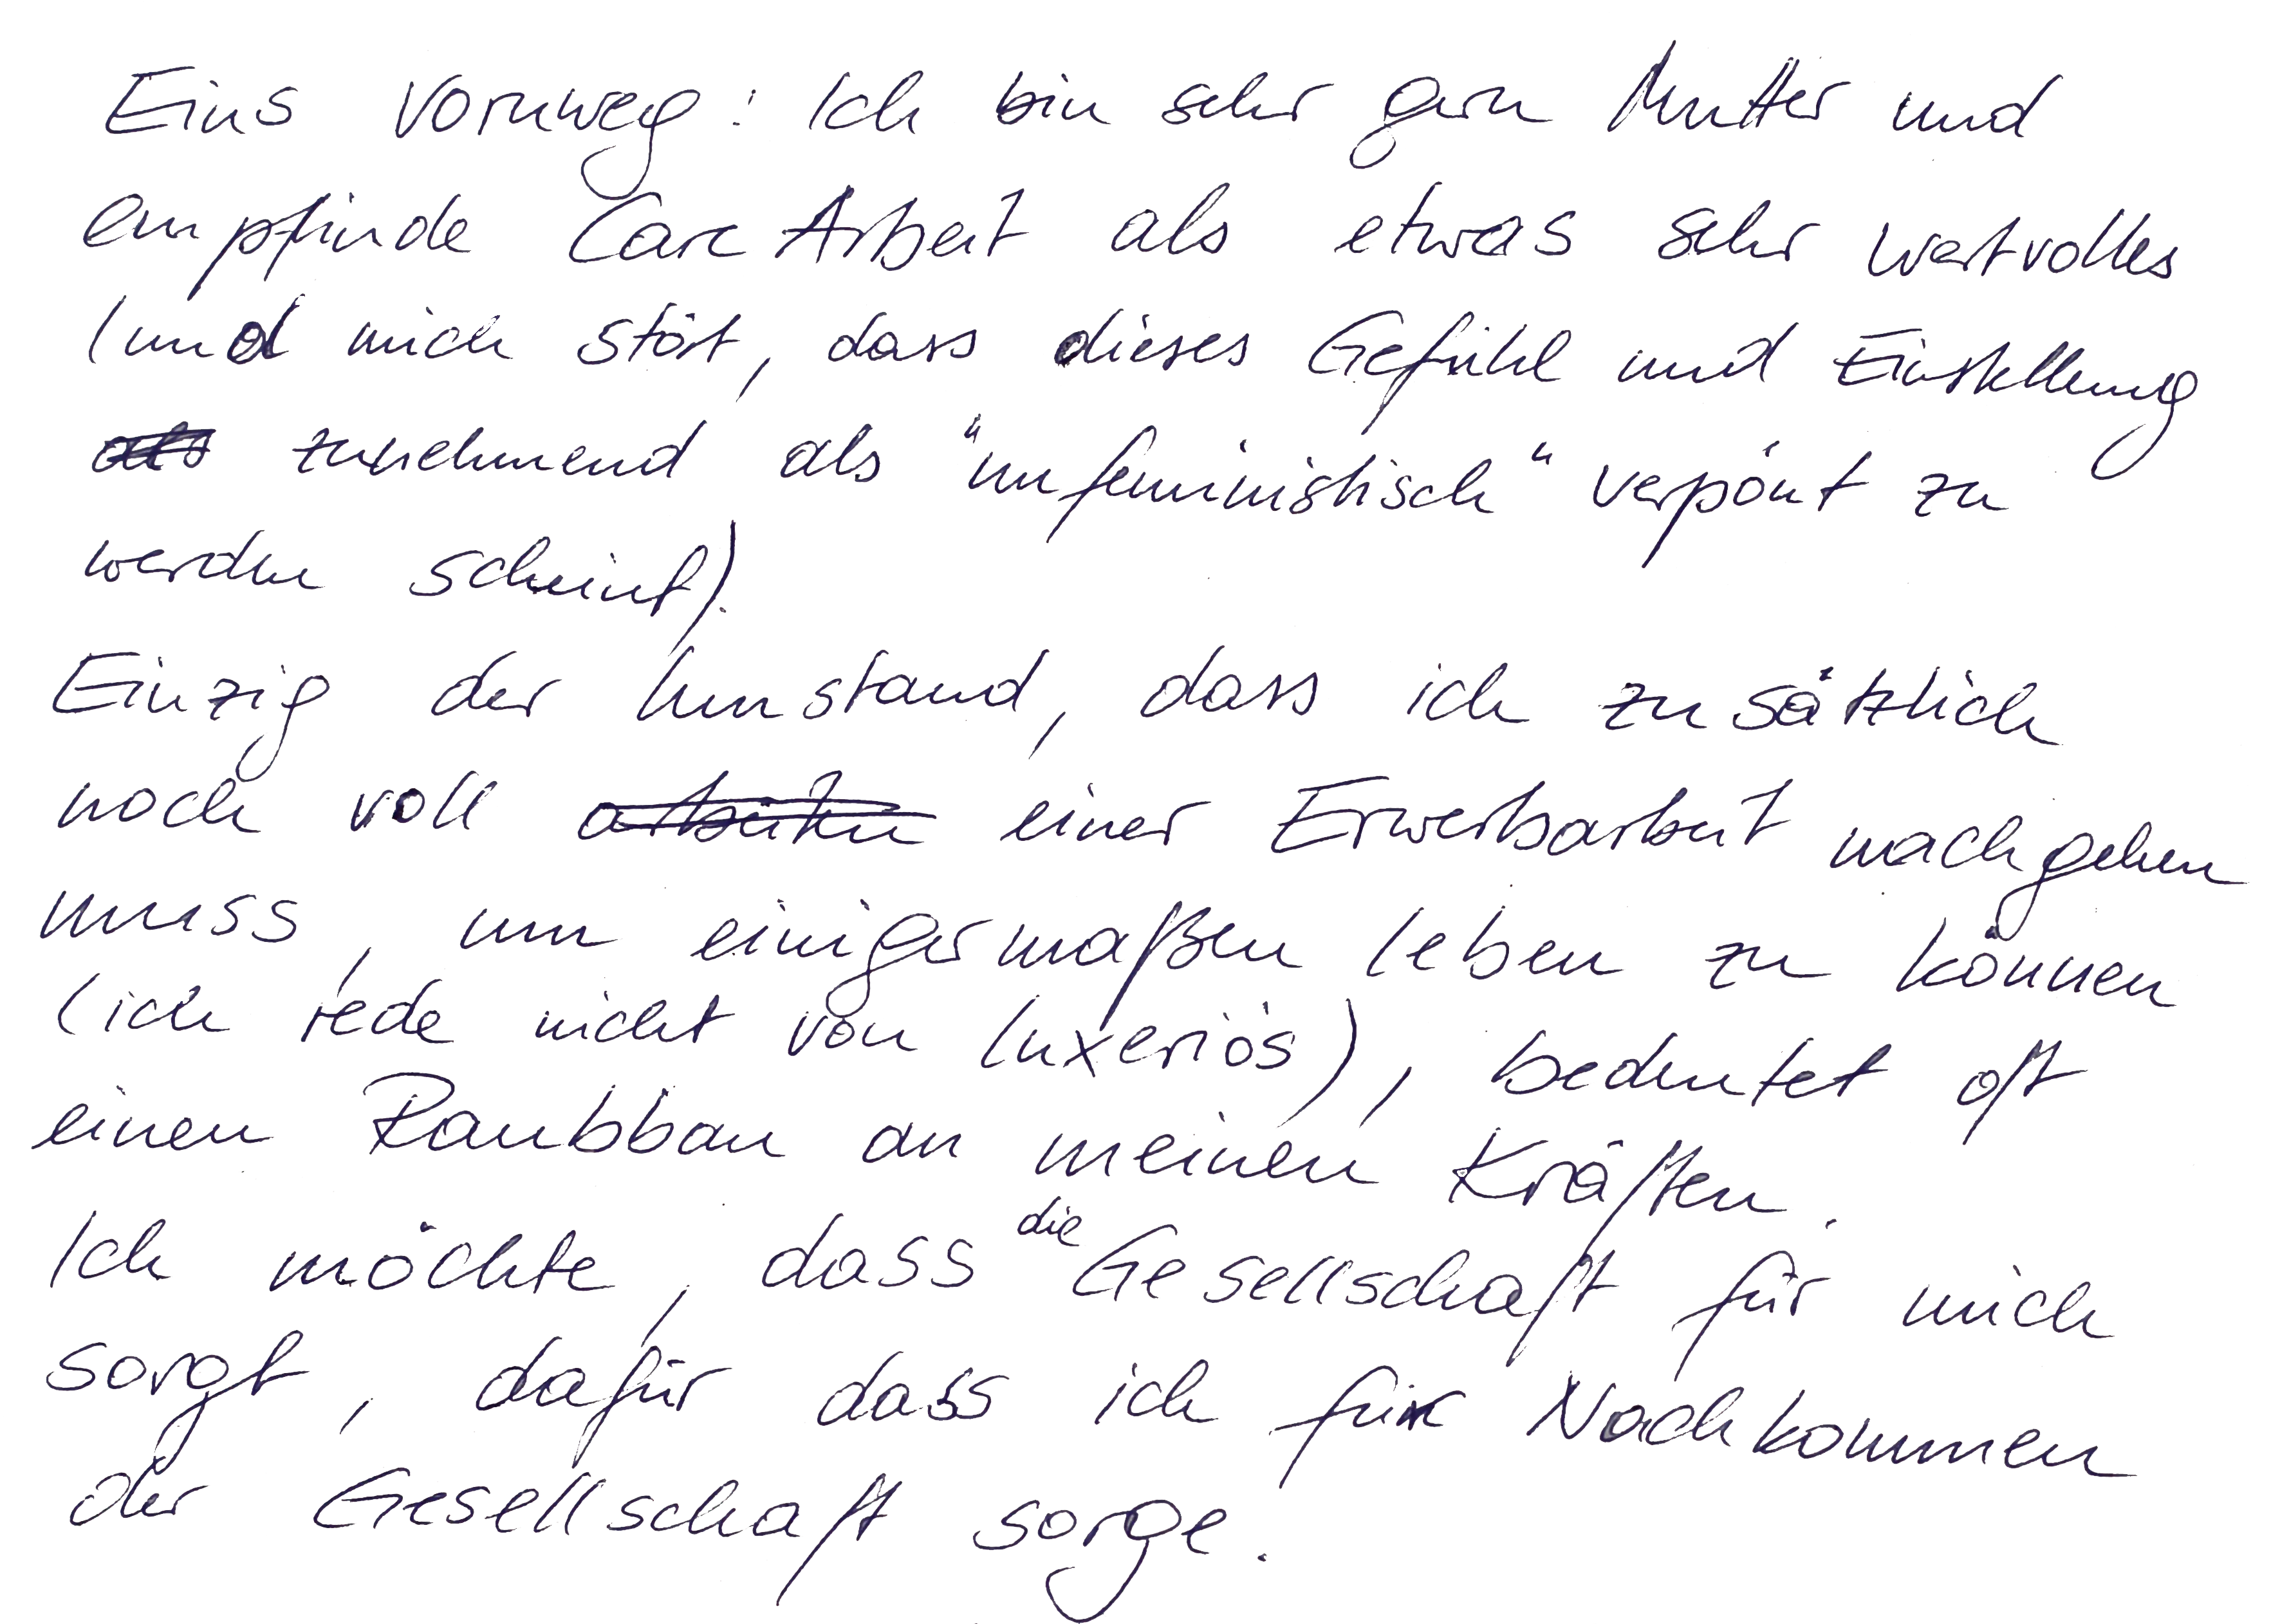 Eins vornweg: Ich bin sehr gern Mutter und
empfinde Care Arbeit als etwas sehr wertvolles
(und mich stört, dass dieses Gefühl und Einstellung
als zunehmend als "unfeministisch" verpönt zu
werden scheint).
Einzig der Umstand, dass ich zusätzlich
noch voll arbeiten einer Erwerbsarbeit nachgehen
muss, um einigermaßen leben zu können
(ich rede nicht von luxeriös), bedeutet oft
einen Raubbau an meinen Kräften.
Ich möchte, dass die Gesellschaft für mich
sorgt, dafür dass ich für Nachkommen
der Gesellschaft sorge.